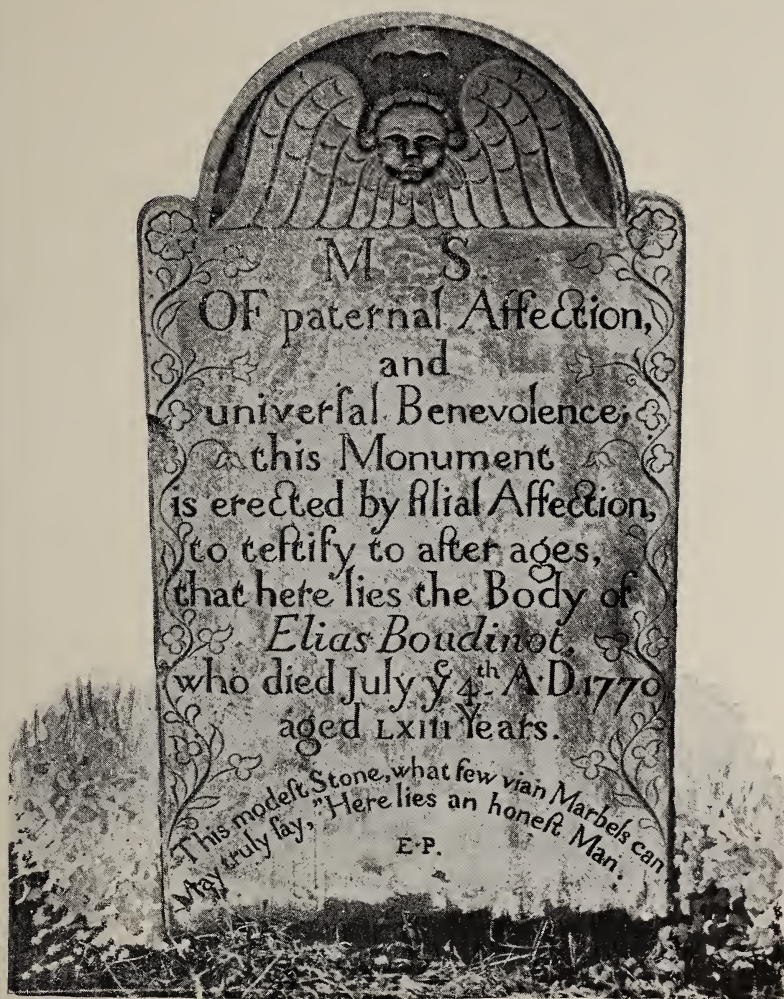 M S.
OF paternal Affection,
and
univerſal Benevolence,
this Monument
is erected by filial Affection,
to teſtify to after ages,
that here lies the Body of
Elias Boudinot,
who died July yͤ 4th A·D·1770
aged LXIII Years.
This modeſt Stone, what few vian Marbels can
May truly ſay, "Here lies an honeſt Man.
E·P.